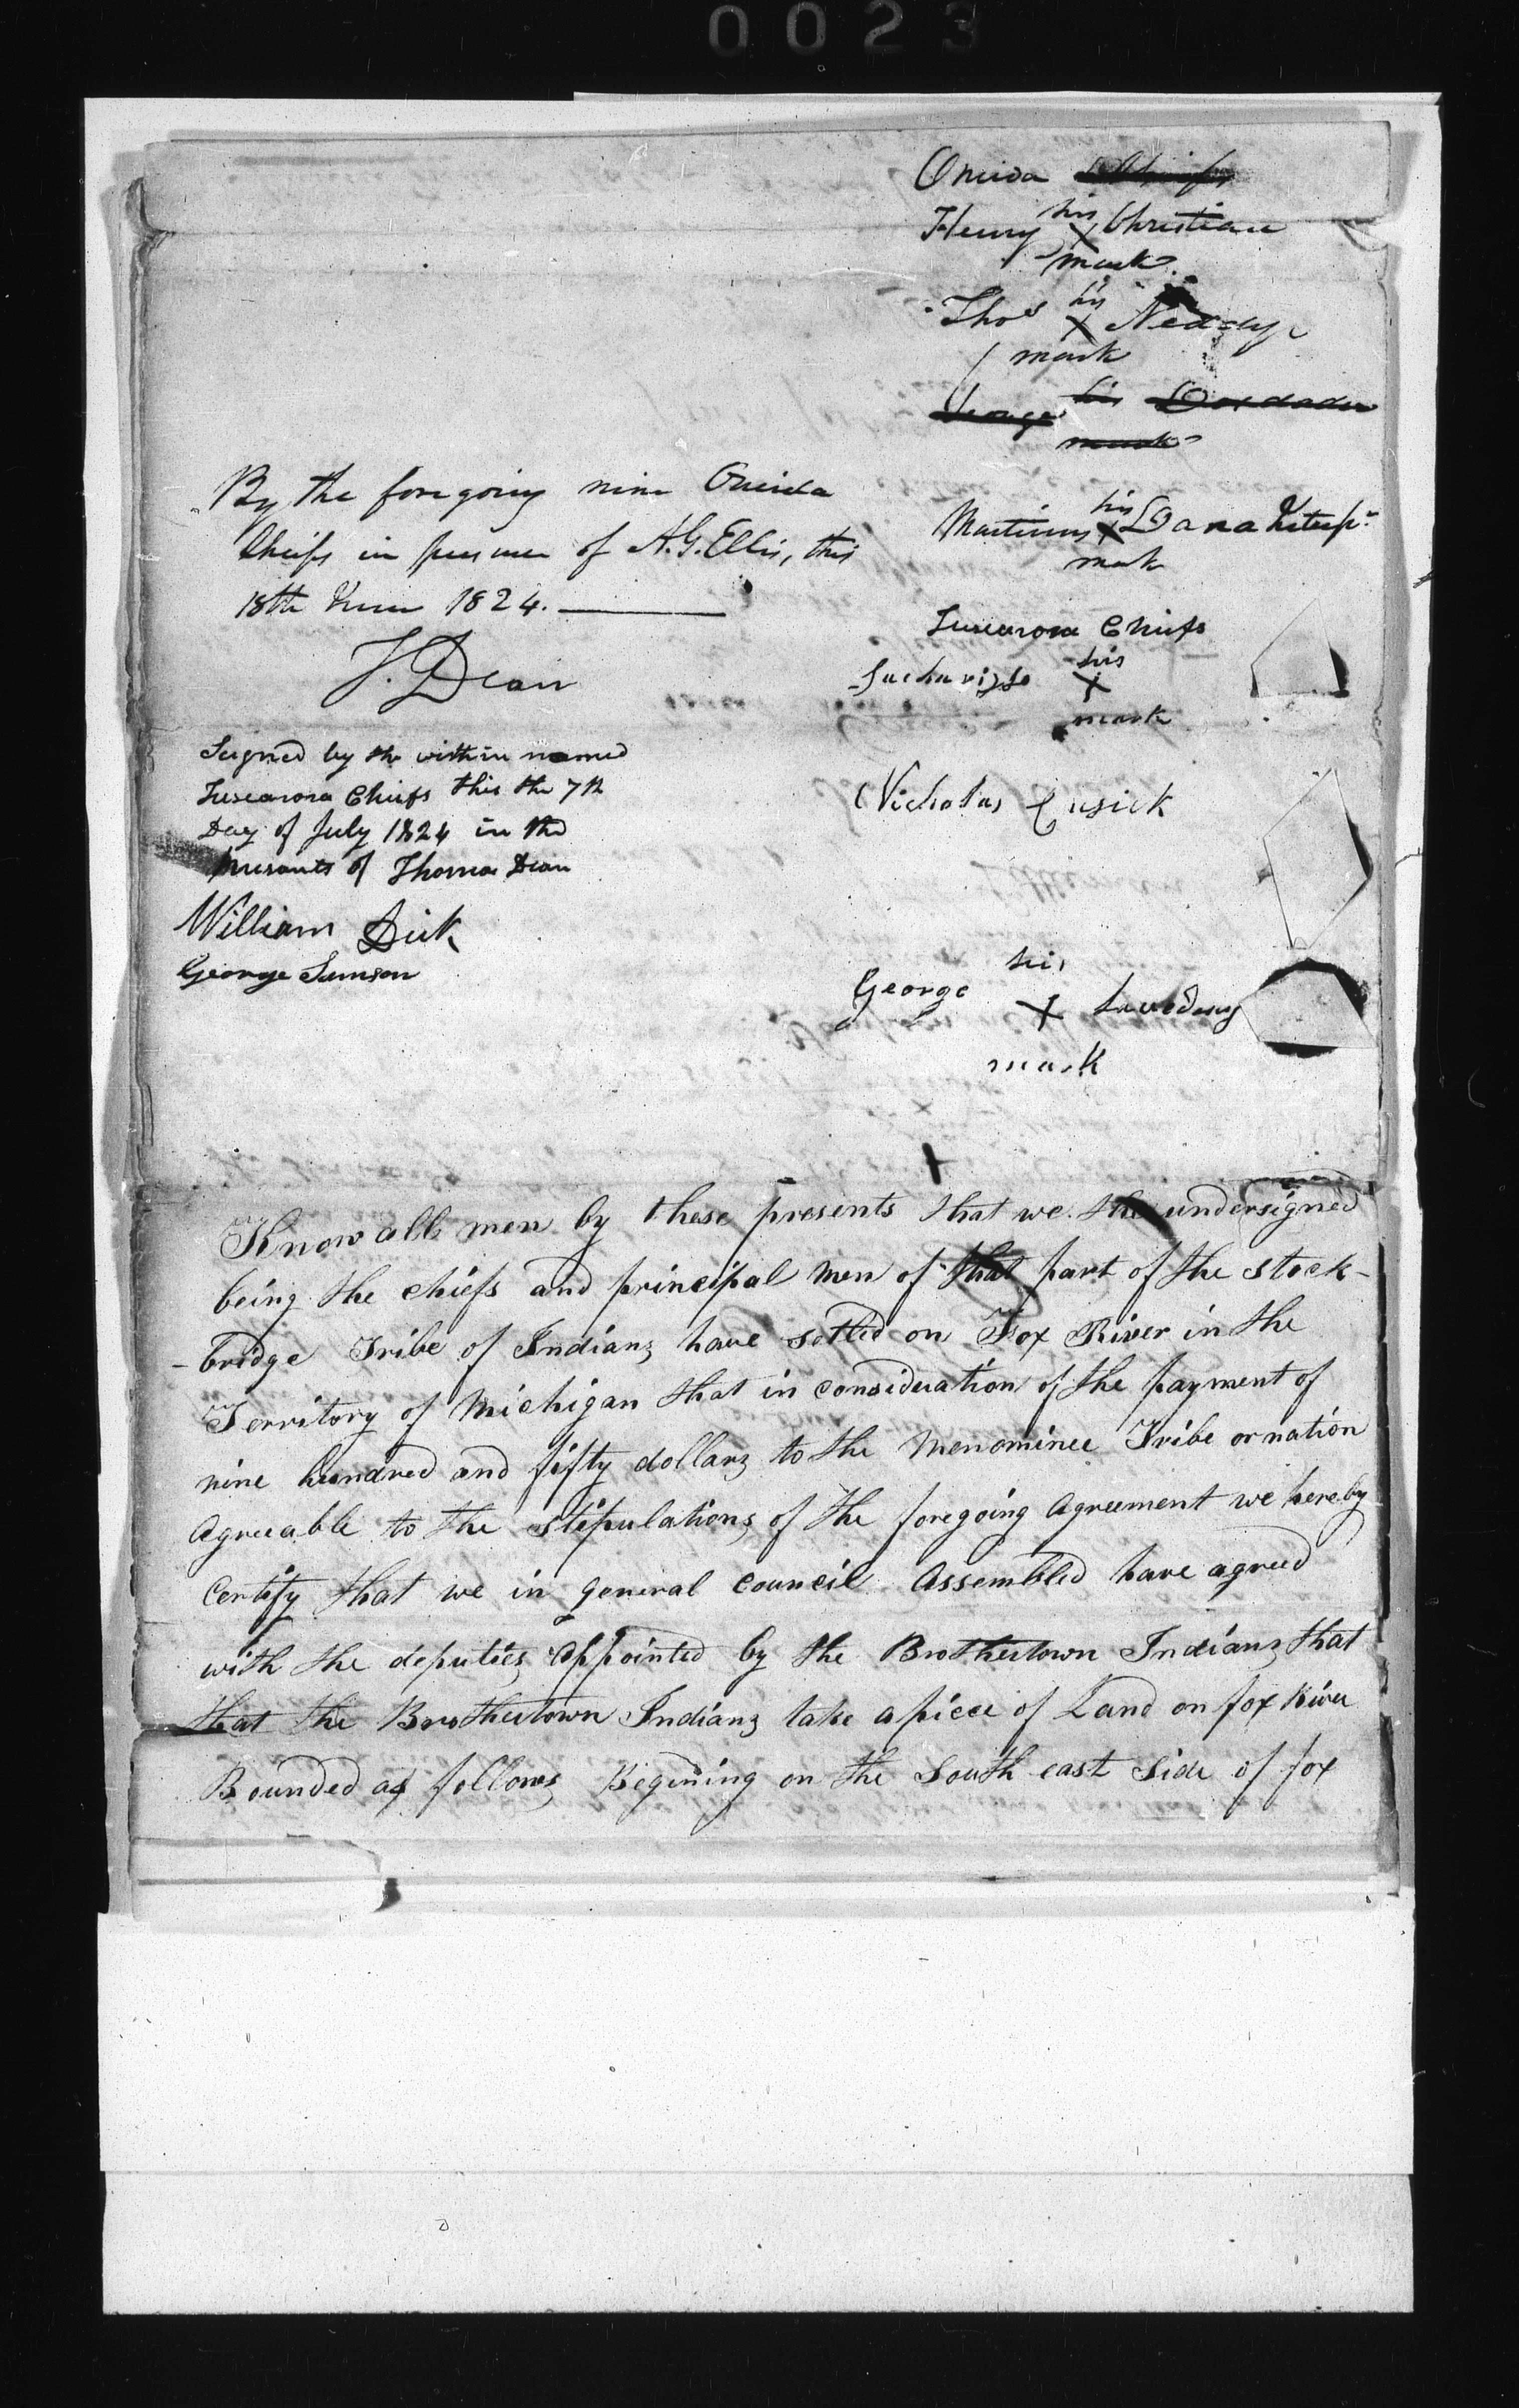 0023
Oneida Chiefs
his
Henry X Christian
mark
his
Thos X Neddy
mark
George his
mark
his
Martinus X Dana
mark
By the foregoing nine Oneida
Cheifs in presence of A.G. Ellis, this
18th June 1824.
T. Dean
Tuscarora Chiefs
his
Sacharisso X
mark
Nicholas Cusick
his
George X
mark
Signed by the within named
Tuscarora Chiefs this the 7th
Day of July 1824 in the
presants of Thomas Dean
William Dick
George Samson
Know all men by these presents that we the undersigned
being the chiefs and principal men of that part of the stock-
-bridge Tribe of Indians have setled on Fox River in the
Territory of Michigan that in consideration of the payment of
nine hundred and fifty dollars to the Menominee Tribe or nation
agreeable to the stipulations of the foregoing Agreement we hereby
Certify that we in general council Assembled have agreed
with the deputies appointed by the Brothertown Indians that
that the Brothertown Indians take a piece of Land on fox River
Bounded as follows Begining on the South east Side of fox